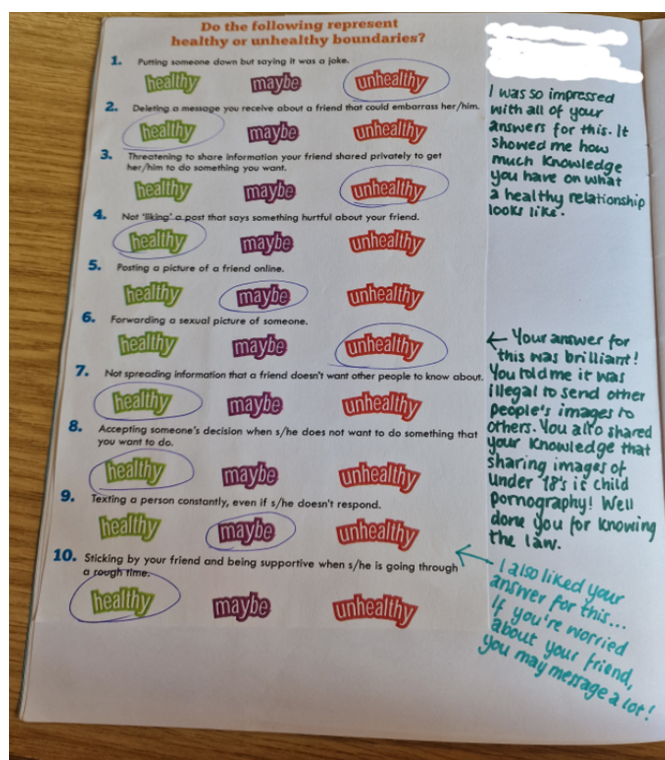 Do the following represent
healthy or unhealthy boundaries?
1. Putting someone down but saying it was a joke.
healthy maybe unhealthy
2. Deleting a message you receive about a friend that could embarrass her/him.
healthy maybe unhealthy
3. Threatening to share information your friend shared privately to get
her/him to do something you want.
healthy maybe unhealthy
4. Not 'liking' a post that says something hurtful about your friend.
healthy maybe unhealthy
5. Posting a picture of a friend online.
healthy maybe unhealthy
6. Forwarding a sexual picture of someone.
healthy maybe unhealthy
7. Not spreading information that a friend doesn't want other people to know about.
healthy maybe unhealthy
8. Accepting someone's decision when s/he does not want to do something that
you want to do.
healthy maybe unhealthy
9. Texting a person constantly, even if s/he doesn't respond.
healthy maybe unhealthy
10. Sticking by your friend and being supportive when s/he is going through
a rough time.
healthy maybe unhealthy
I was so impressed
with all of your
answers for this. It
showed me how
much knowledge
you have on what
a healthy relationship
looks like.
← Your answer for
this was brilliant!
You told me it was
illegal to send other
people's images to
others. You also shared
your knowledge that
sharing images of
under 18's is child
pornography! Well
done you for knowing
the law.
← I also liked your
answer for this...
If you're worried
about your friend,
you may message a lot!